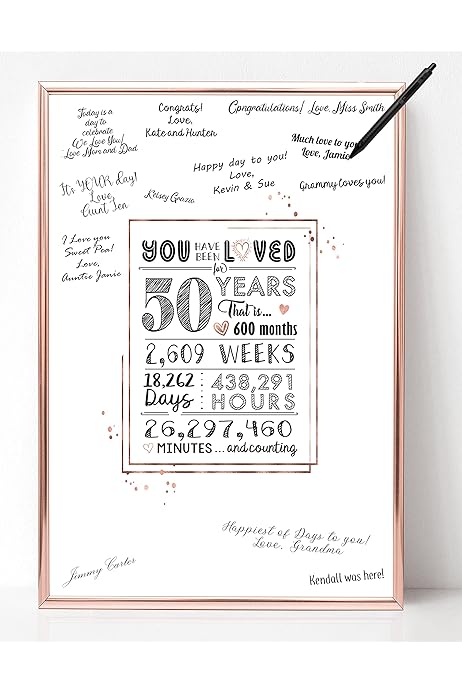 Today is a
day to
celebrate
We Love You!
Love Mom and Dad
Congrats!
Love,
Kate and Hunter
Congratulations! Love, Miss Smith
Much love to you
Love, Jamie
Happy day to you!
Love,
Kevin & Sue
Grammy loves you!
It's YOUR day!
Love
Aunt Jen
Kelsey Grazio
I Love you
Sweet Pea!
Love,
Auntie Janie
YOU HAVE BEEN LOVED
for
50 YEARS
That is...
600 months
2,609 WEEKS
18,262 Days : 438,291 HOURS
26,297,460
MINUTES... and counting
Happiest of Days to you!
Love, Grandma
Jimmy Carter
Kendall was here!